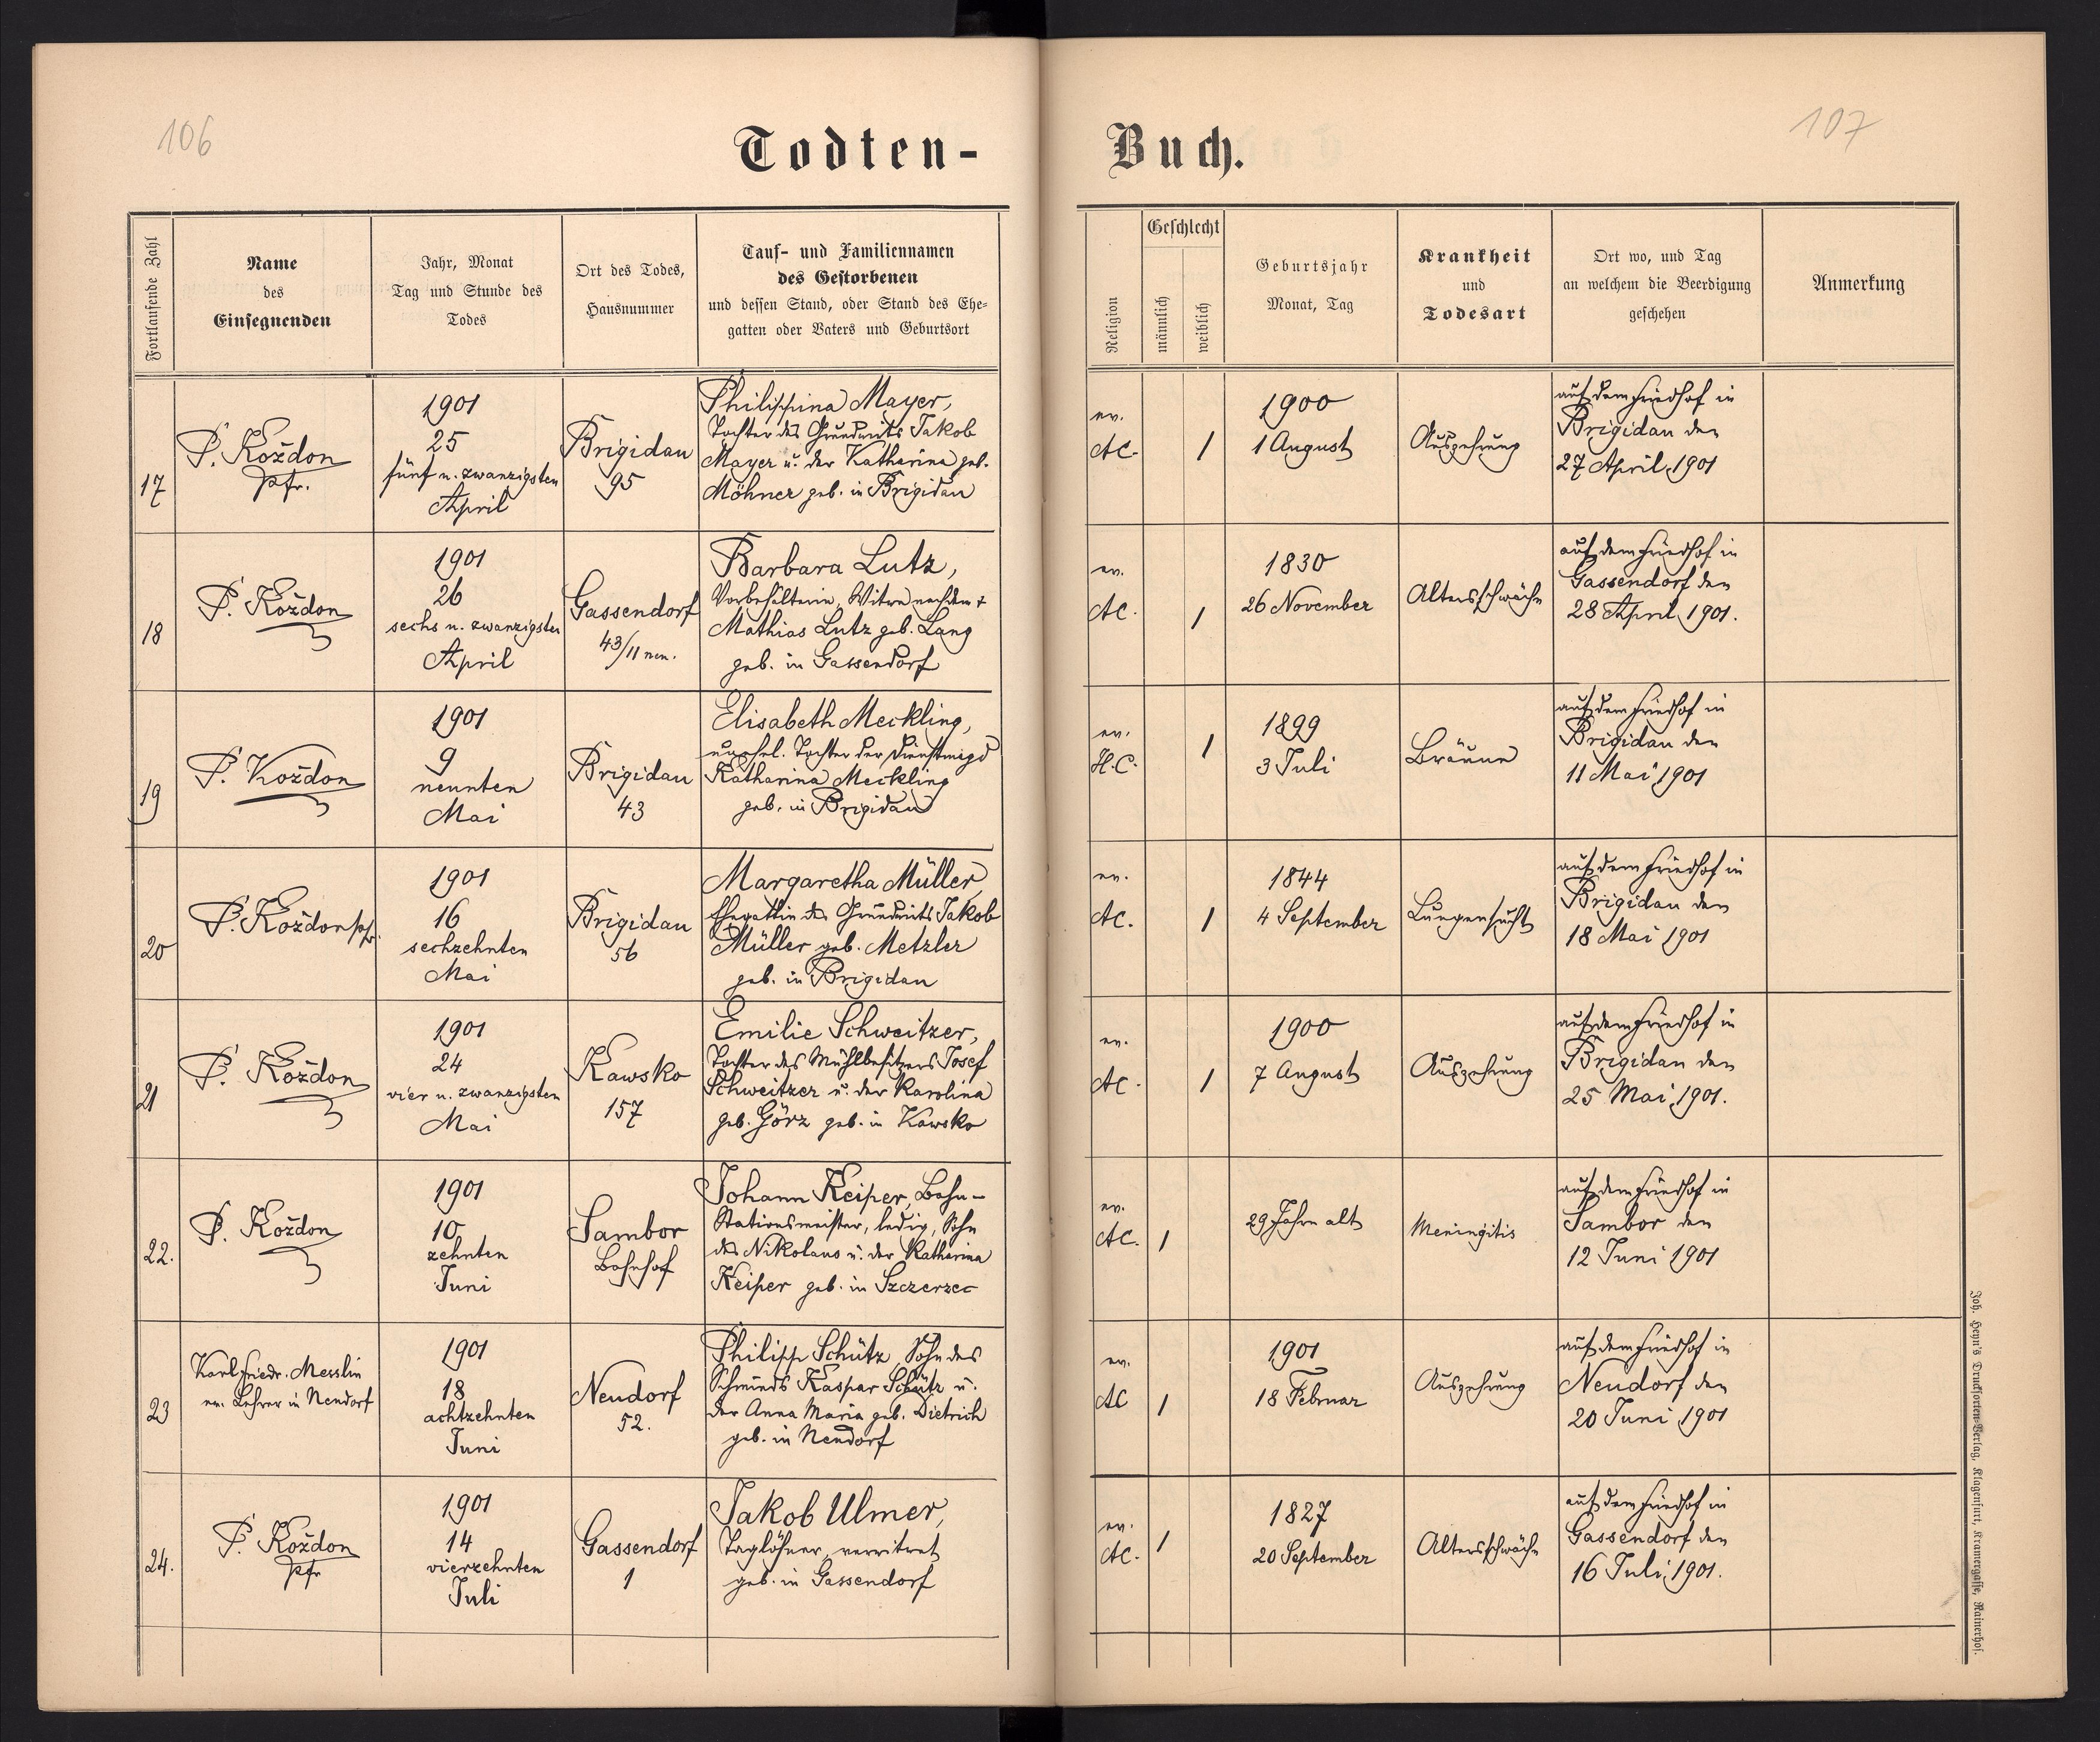 106
107
Todten-
Buch.
Fortlaufende Zahl
Name
des
Einsegnenden
Jahr, Monat
Tag und Stunde des
Todes
Ort des Todes,
Hausnummer
Tauf- und Familiennamen
des Gestorbenen
und dessen Stand, oder Stand des Ehe-
gatten oder Vaters und Geburtsort
Religion
Geschlecht
männlich
weiblich
Geburtsjahr
Monat, Tag
Krankheit
und
Todesart
Ort wo, und Tag
an welchem die Beerdigung
geschehen
Anmerkung
17
P. Koždon
Pfr.
1901
25
fünf u. zwanzigsten
April
Brigidau
95
Philippina Mayer,
Tochter des Grundwirts Jakob
Mayer u. der Katharina geb.
Möhner geb. in Brigidau
ev.
AC.
1
1900
1 August
Auszehrung
auf dem Friedhof in
Brigidau den
27 April 1901
18
P. Koždon
1901
26
sechs u. zwanzigsten
April
Gassendorf
43/11 neu.
Barbara Lutz,
Vorbehälterin, Witwe nach dem +
Mathias Lutz geb. Lang
geb. in Gassendorf
ev.
AC.
1
1830
26 November
Altersschwäche
auf dem Friedhof in
Gassendorf den
28 April 1901.
19
P. Koždon
1901
9
neunten
Mai
Brigidau
43
Elisabeth Meckling,
unehel. Tochter der Dienstmagd
Katharina Meckling
geb. in Brigidau
ev.
H.C.
1
1899
3 Juli
Bräune
auf dem Friedhof in
Brigidau den
11 Mai 1901
20
P. Koždon pfr.
1901
16
sechzehnten
Mai
Brigidau
56
Margaretha Müller,
Ehegattin des Grundwirts Jakob
Müller geb. Metzler
geb. in Brigidau
ev.
AC.
1
1844
4 September
Lungensucht
auf dem Friedhof in
Brigidau den
18 Mai 1901
21
P. Koždon
1901
24
vier u. zwanzigsten
Mai
Kawsko
157
Emilie Schweitzer,
Tochter des Mühlbesitzers Josef
Schweitzer u. der Karolina
geb. Görz geb. in Kawsko
ev.
AC.
1
1900
7 August
Auszehrung
auf dem Friedhof in
Brigidau den
25 Mai 1901.
22.
P. Koždon
1901
10
zehnten
Juni
Sambor
Bahnhof
Johann Keiper, Bahn-
Stationsmeister, ledig, Sohn
des Nikolaus u. der Katharina
Keiper geb. in Szczerzec
ev.
AC.
1
29 Jahre alt
Meningitis
auf dem Friedhof in
Sambor den
12 Juni 1901
23
Karl Friedr. Messlin
ev. Lehrer in Neudorf
1901
18
achtzehnten
Juni
Neudorf
52.
Philipp Schütz, Sohn des
Schmieds Kaspar Schütz u.
der Anna Maria geb. Dietrich
geb. in Neudorf
ev.
AC
1
1901
18 Februar
Auszehrung
auf dem Friedhof in
Neudorf den
20 Juni 1901
24.
P. Koždon
Pfr
1901
14
vierzehnten
Juli
Gassendorf
1
Jakob Ulmer,
Taglöhner, verwitwet
geb. in Gassendorf
ev.
AC.
1
1827
20 September
Altersschwäche
auf dem Friedhof in
Gassendorf den
16 Juli 1901.
Joh. Heyn's Drucksorten-Verlag, Klagenfurt, Kramergasse, Rainerhof.